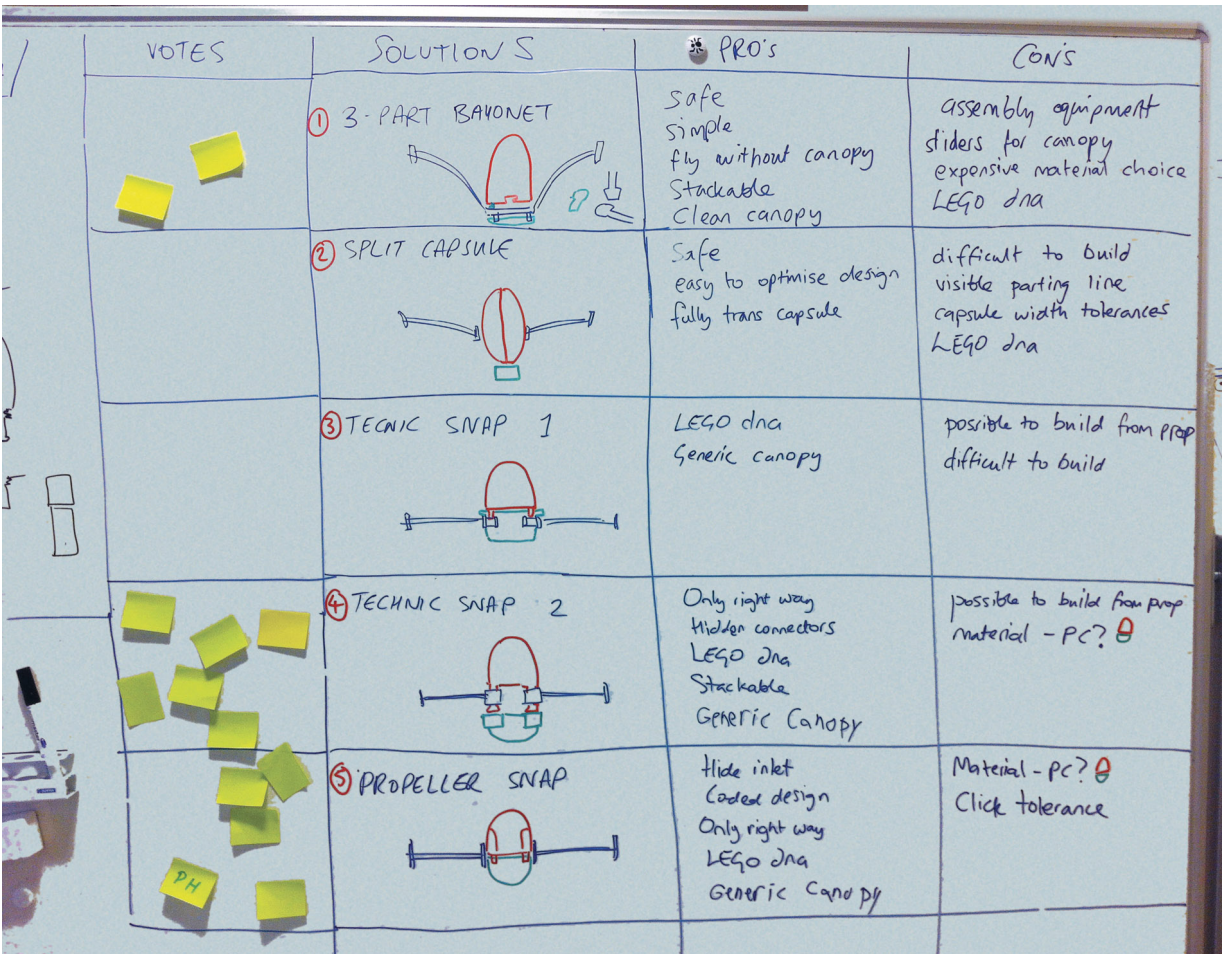 VOTES
SOLUTIONS
PRO's
CON'S
1 3-PART BAYONET
safe
simple
fly without canopy
Stackable
Clean canopy
assembly equipment
sliders for canopy
expensive material choice
LEGO dna
2 SPLIT CAPSULE
Safe
easy to optimise design
fully trans capsule
difficult to build
visible parting line
capsule width tolerances
LEGO dna
3 TECNIC SNAP 1
LEGO dna
Generic canopy
possible to build from prop
difficult to build
4 TECHNIC SNAP 2
Only right way
Hidden connectors
LEGO dna
Stackable
Generic Canopy
possible to build from prop
material - PC?
5 PROPELLER SNAP
Hide inlet
Coded design
Only right way
LEGO dna
Generic Canopy
Material - PC?
Click tolerance
PH